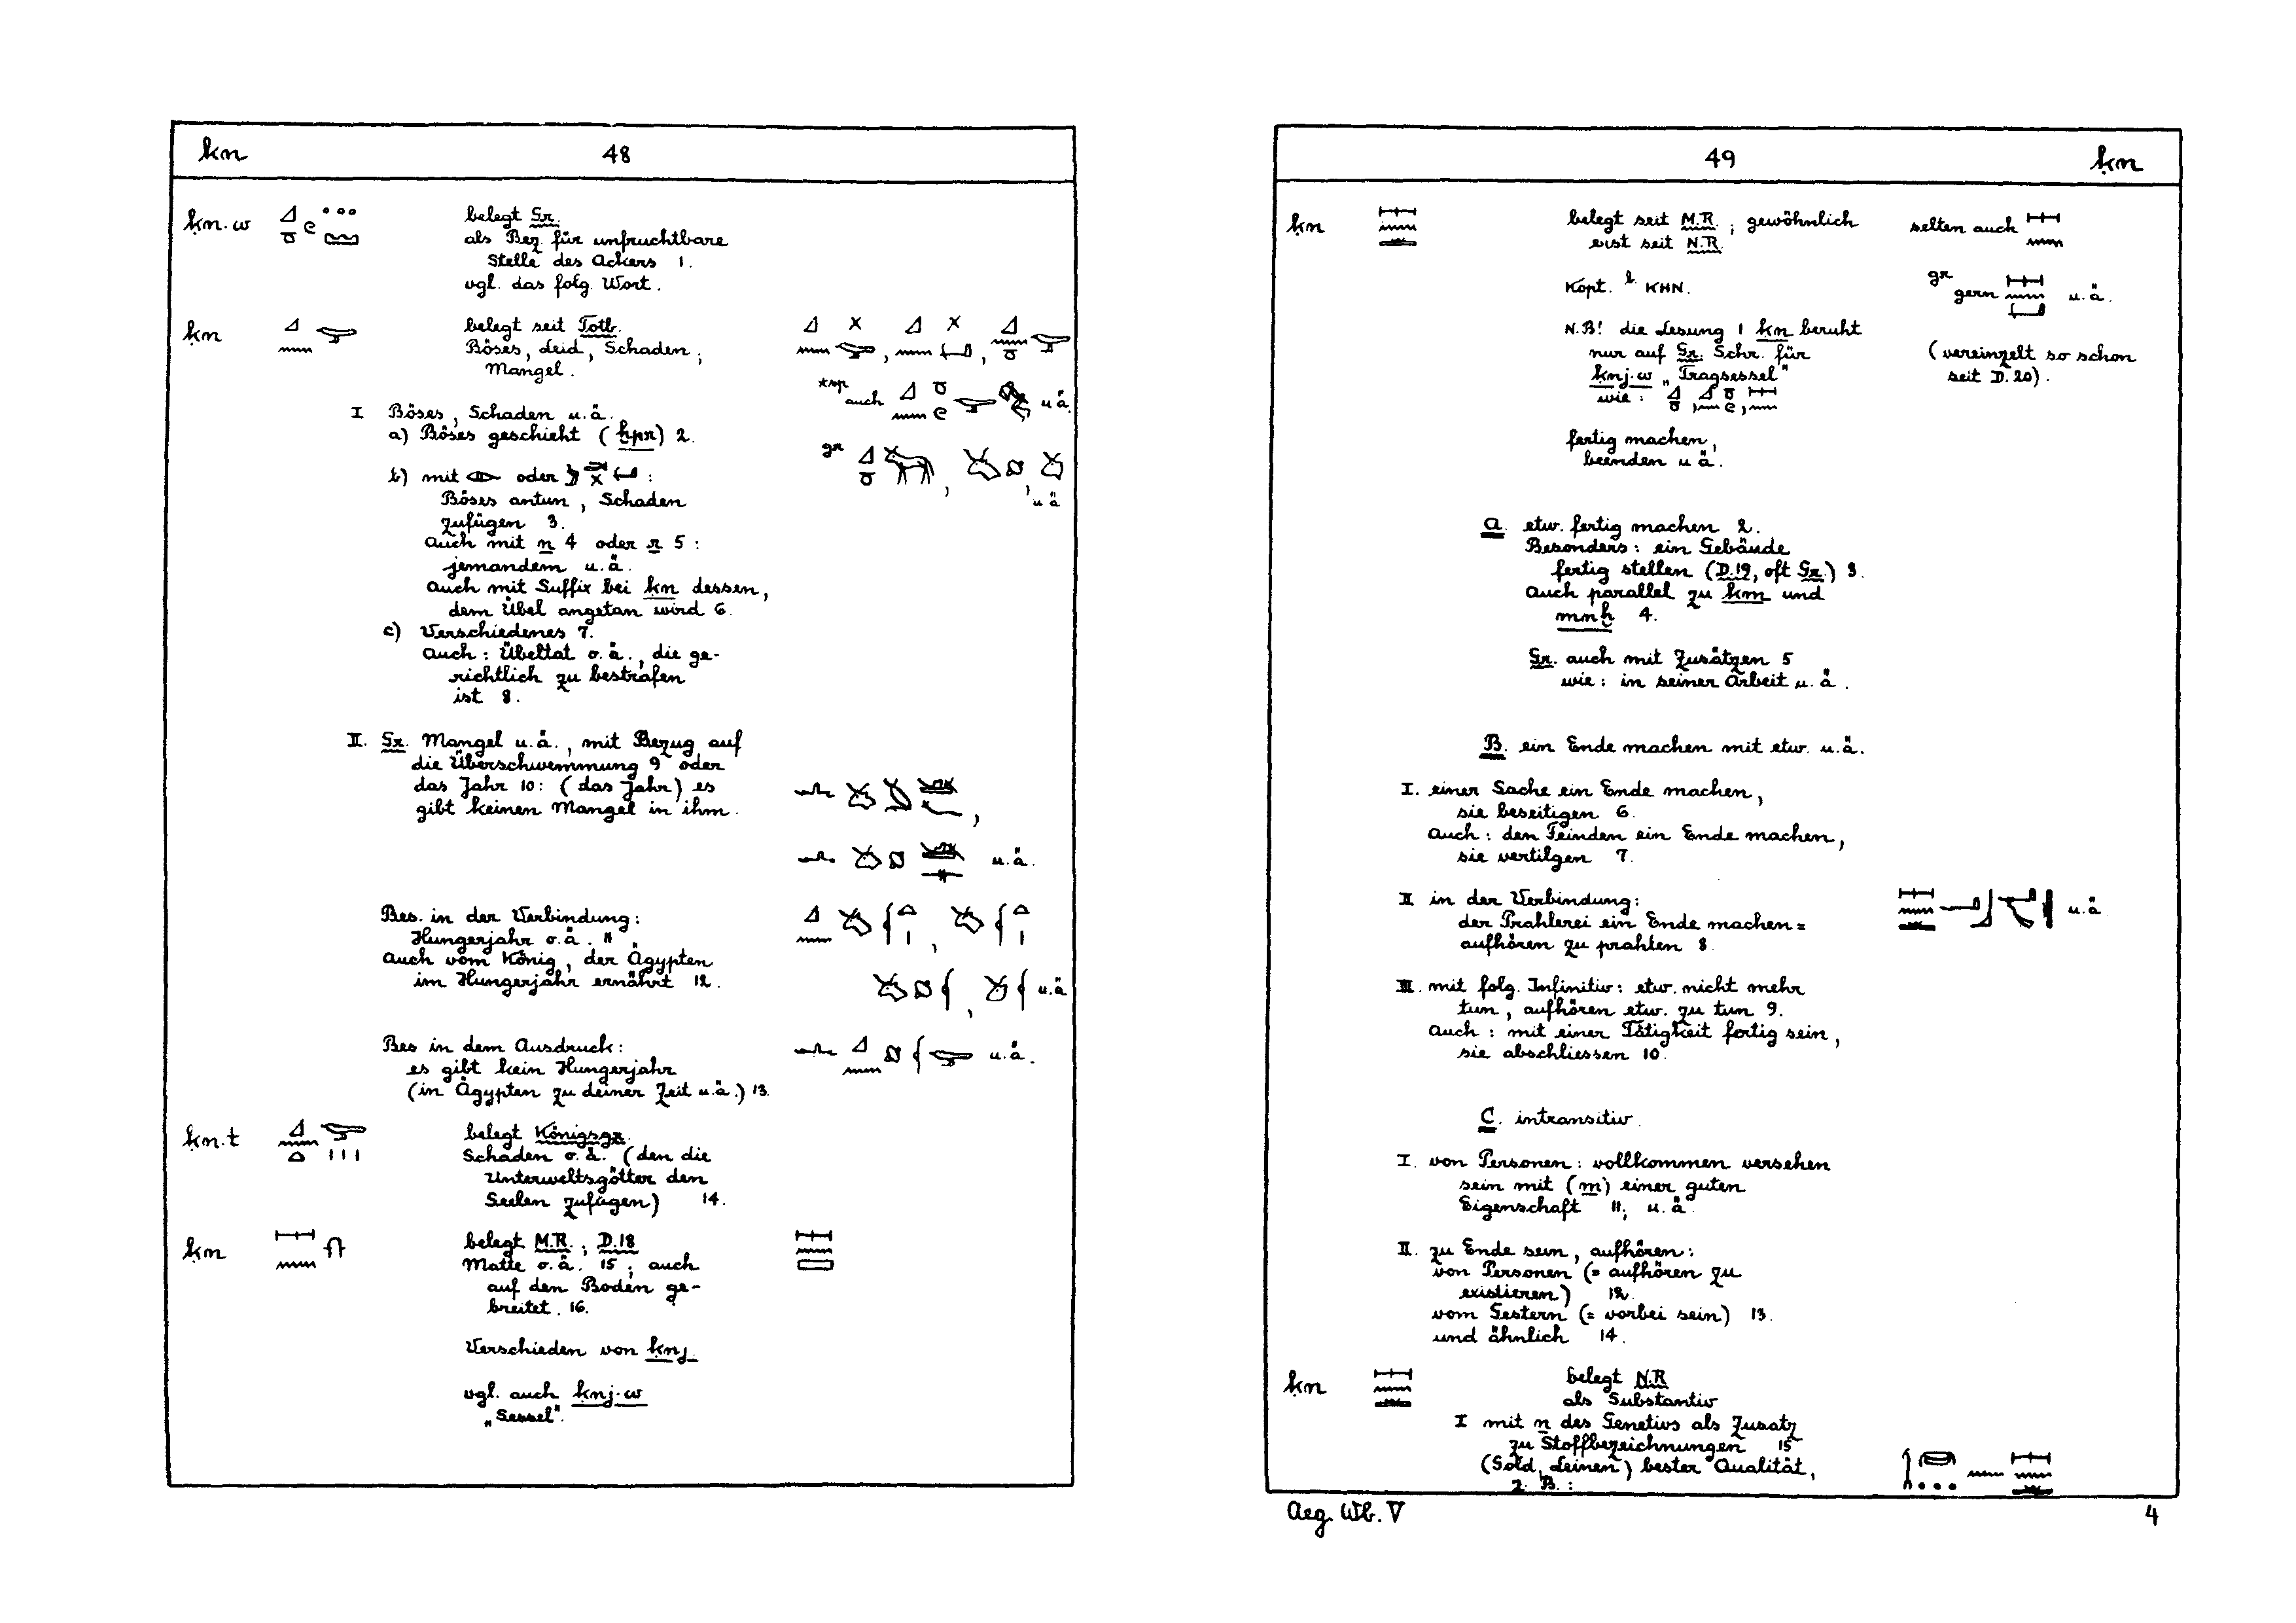 ḳn
48
ḳn.w
belegt Gr.
als Bez. für unfruchtbare
Stelle des Ackers 1.
vgl. das folg. Wort.
ḳn
belegt seit Totb.
Böses, Leid, Schaden,
Mangel.
auch
u.ä.
gr
u.ä
I Böses, Schaden u.ä.
a) Böses geschieht (ḫpr) 2.
b) mit oder :
Böses antun, Schaden
zufügen 3.
Auch mit n 4 oder r 5 :
jemandem u.ä.
Auch mit Suffix bei ḳn dessen,
dem Übel angetan wird 6.
c) Verschiedenes 7.
Auch : Übeltat o.ä., die ge-
richtlich zu bestrafen
ist 8.
II. Gr. Mangel u.ä., mit Bezug auf
die Überschwemmung 9 oder
das Jahr 10: (das Jahr) es
gibt keinen Mangel in ihm.
u.ä.
Bes. in der Verbindung:
Hungerjahr o.ä. 11
Auch vom König, der Ägypten
im Hungerjahr ernährt 12.
u.ä
Bes in dem Ausdruck:
es gibt kein Hungerjahr
(in Ägypten zu deiner Zeit u.ä.) 13.
u.ä.
ḳn.t
belegt Königsgr.
Schaden o.ä. (den die
Unterweltsgötter den
Seelen zufügen) 14.
ḳn
belegt M.R.; D.18
Matte o.ä. 15; auch
auf den Boden ge-
breitet. 16.
Verschieden von ḳnj.
vgl. auch ḳnj.w
„Sessel".
49
ḳn
ḳn
belegt seit M.R.; gewöhnlich
erst seit N.R.
selten auch
Kopt. b. ⲕⲏⲛ.
gr
gern u.ä.
(vereinzelt so schon
seit D.20).
N.B! die Lesung 1 ḳn beruht
nur auf Gr. Schr. für
ḳnj.w „Tragsessel"
wie :
fertig machen,
beenden u ä.
A. etw. fertig machen 2.
Besonders : ein Gebäude
fertig stellen (D.19, oft Gr.) 3.
Auch parallel zu km und
mnḫ 4.
Gr. auch mit Zusätzen 5
wie : in seiner Arbeit u.ä.
B. ein Ende machen mit etw. u.ä.
I. einer Sache ein Ende machen,
sie beseitigen 6.
Auch : den Feinden ein Ende machen,
sie vertilgen 7.
II in der Verbindung:
der Prahlerei ein Ende machen =
aufhören zu prahlen 8.
u.ä
III. mit folg. Infinitiv : etw. nicht mehr
tun, aufhören etw. zu tun 9.
Auch : mit einer Tätigkeit fertig sein,
sie abschliessen 10.
C. intransitiv.
I. von Personen : vollkommen versehen
sein mit (m) einer guten
Eigenschaft 11; u.ä
II. zu Ende sein, aufhören :
von Personen (= aufhören zu
existieren) 12.
vom Gestern (= vorbei sein) 13.
und ähnlich 14.
ḳn
belegt N.R
als Substantiv
I mit n des Genetivs als Zusatz
zu Stoffbezeichnungen 15
(Gold, Leinen) bester Qualität,
z. B. :
Aeg. Wb. V
4